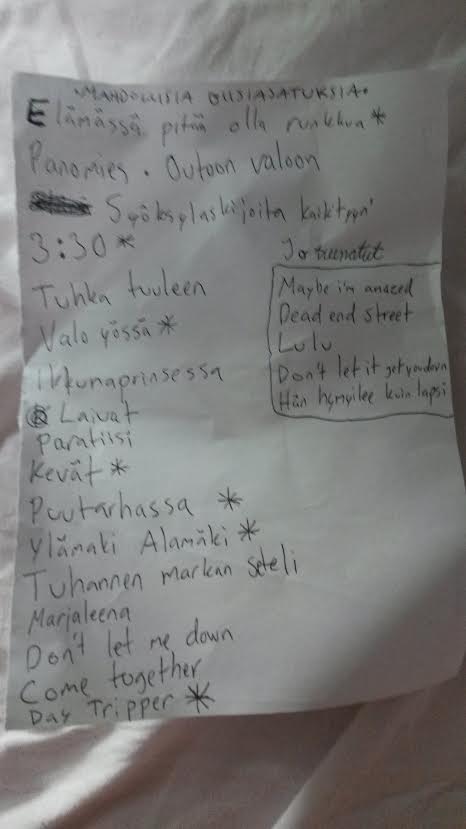 •MAHDOLLISIA UUSIASATUKSIA•
Elämässä pitää olla runkkua *
Panomies • Outoon valoon
Syöksylaskijoita kaikityyn'
3:30 *
Tuhka tuuleen
Valo yössä *
Ikkunaprinsessa
Laivat
Paratiisi
Kevät *
Puutarhassa *
Ylämäki Alamäki *
Tuhannen markan seteli
Marjaleena
Don't let me down
Come together
Day Tripper *
Jo treenatut
Maybe i'm amazed
Dead end street
Lulu
Don't let it get you down
Hän hymyilee kuin lapsi